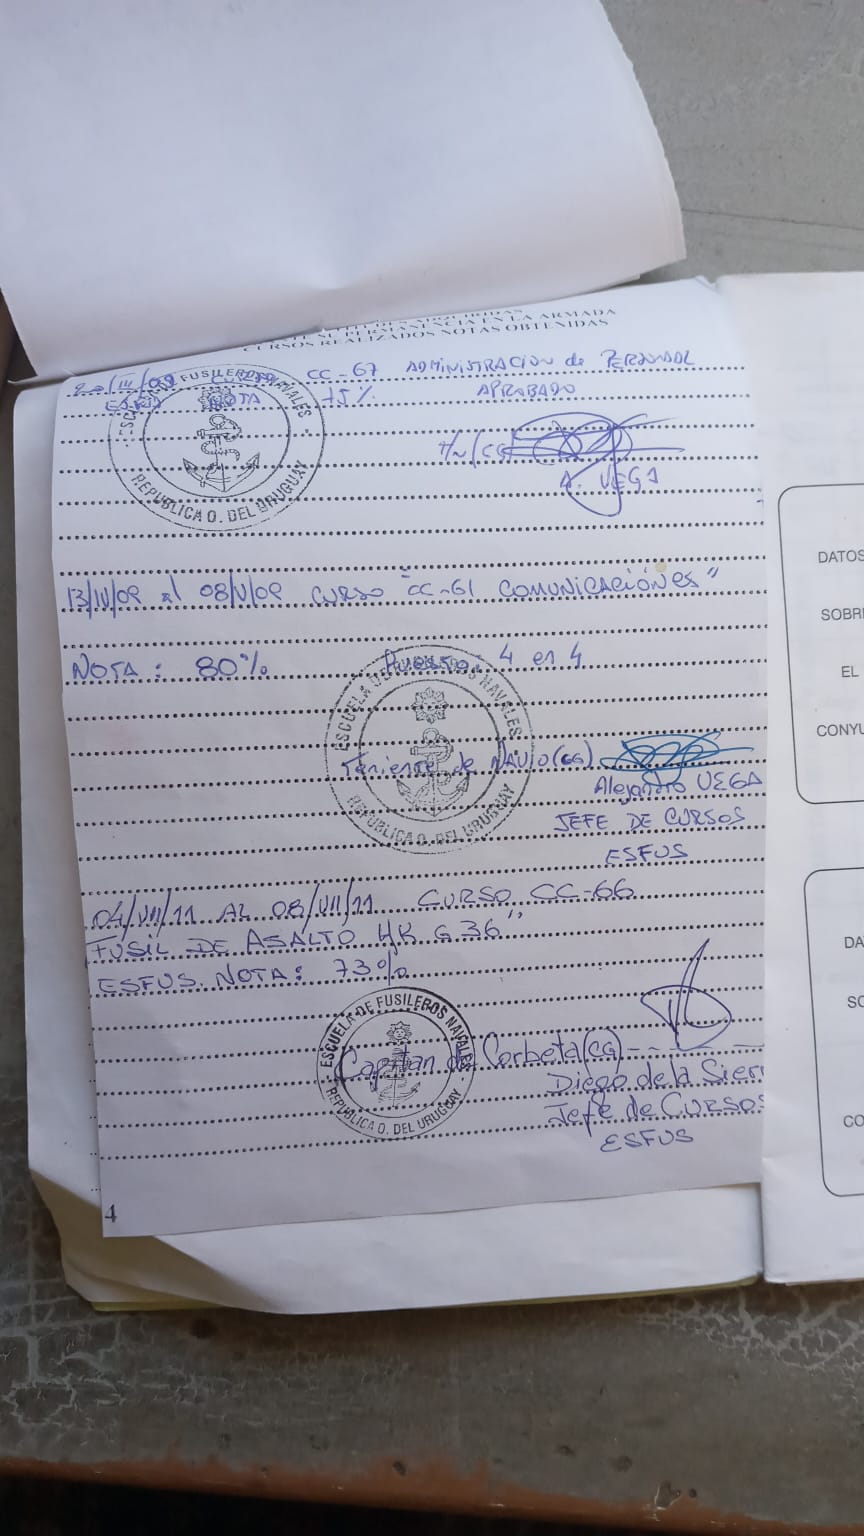 CURSOS REALIZADOS NOTAS OBTENIDAS
20/III/09 CURSO CC-67 ADMINISTRACION de PERSONAL
NOTA 75% APROBADO
A. VEGA
ESCUELA DE FUSILEROS NAVALES
REPUBLICA O. DEL URUGUAY
13/IV/09 al 08/V/09 CURSO "CC-61 COMUNICACIÓNES"
NOTA: 80% Puesto: 4 en 4
ESCUELA DE FUSILEROS NAVALES
REPUBLICA O. DEL URUGUAY
Teniente de NAVIO (CG)
Alejandro VEGA
JEFE DE CURSOS
ESFUS
04/VII/11 AL 08/VII/11 CURSO CC-66
FUSIL DE ASALTO HK G 36"
ESFUS. NOTA: 73%
ESCUELA DE FUSILEROS NAVALES
REPUBLICA O. DEL URUGUAY
Capitan de Corbeta (CG)
Diego de la Sier
Jefe de CURSOS
ESFUS
4
DATOS
SOBRE
EL
CONYU
DA
SO
CO